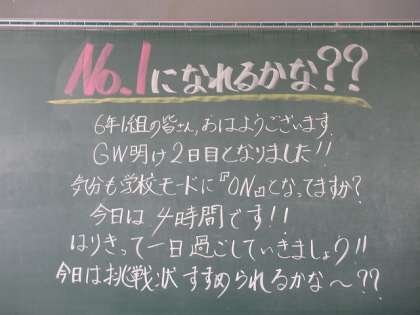 No.1になれるかな??
6年1組の皆さん,おはようございます.
GW明け2日目となりました!!
気分も学校モードに『ON』となってますか?
今日は4時間です!!
はりきって一日過ごしていきましょう!!
今日は挑戦状すすめられるかな〜??